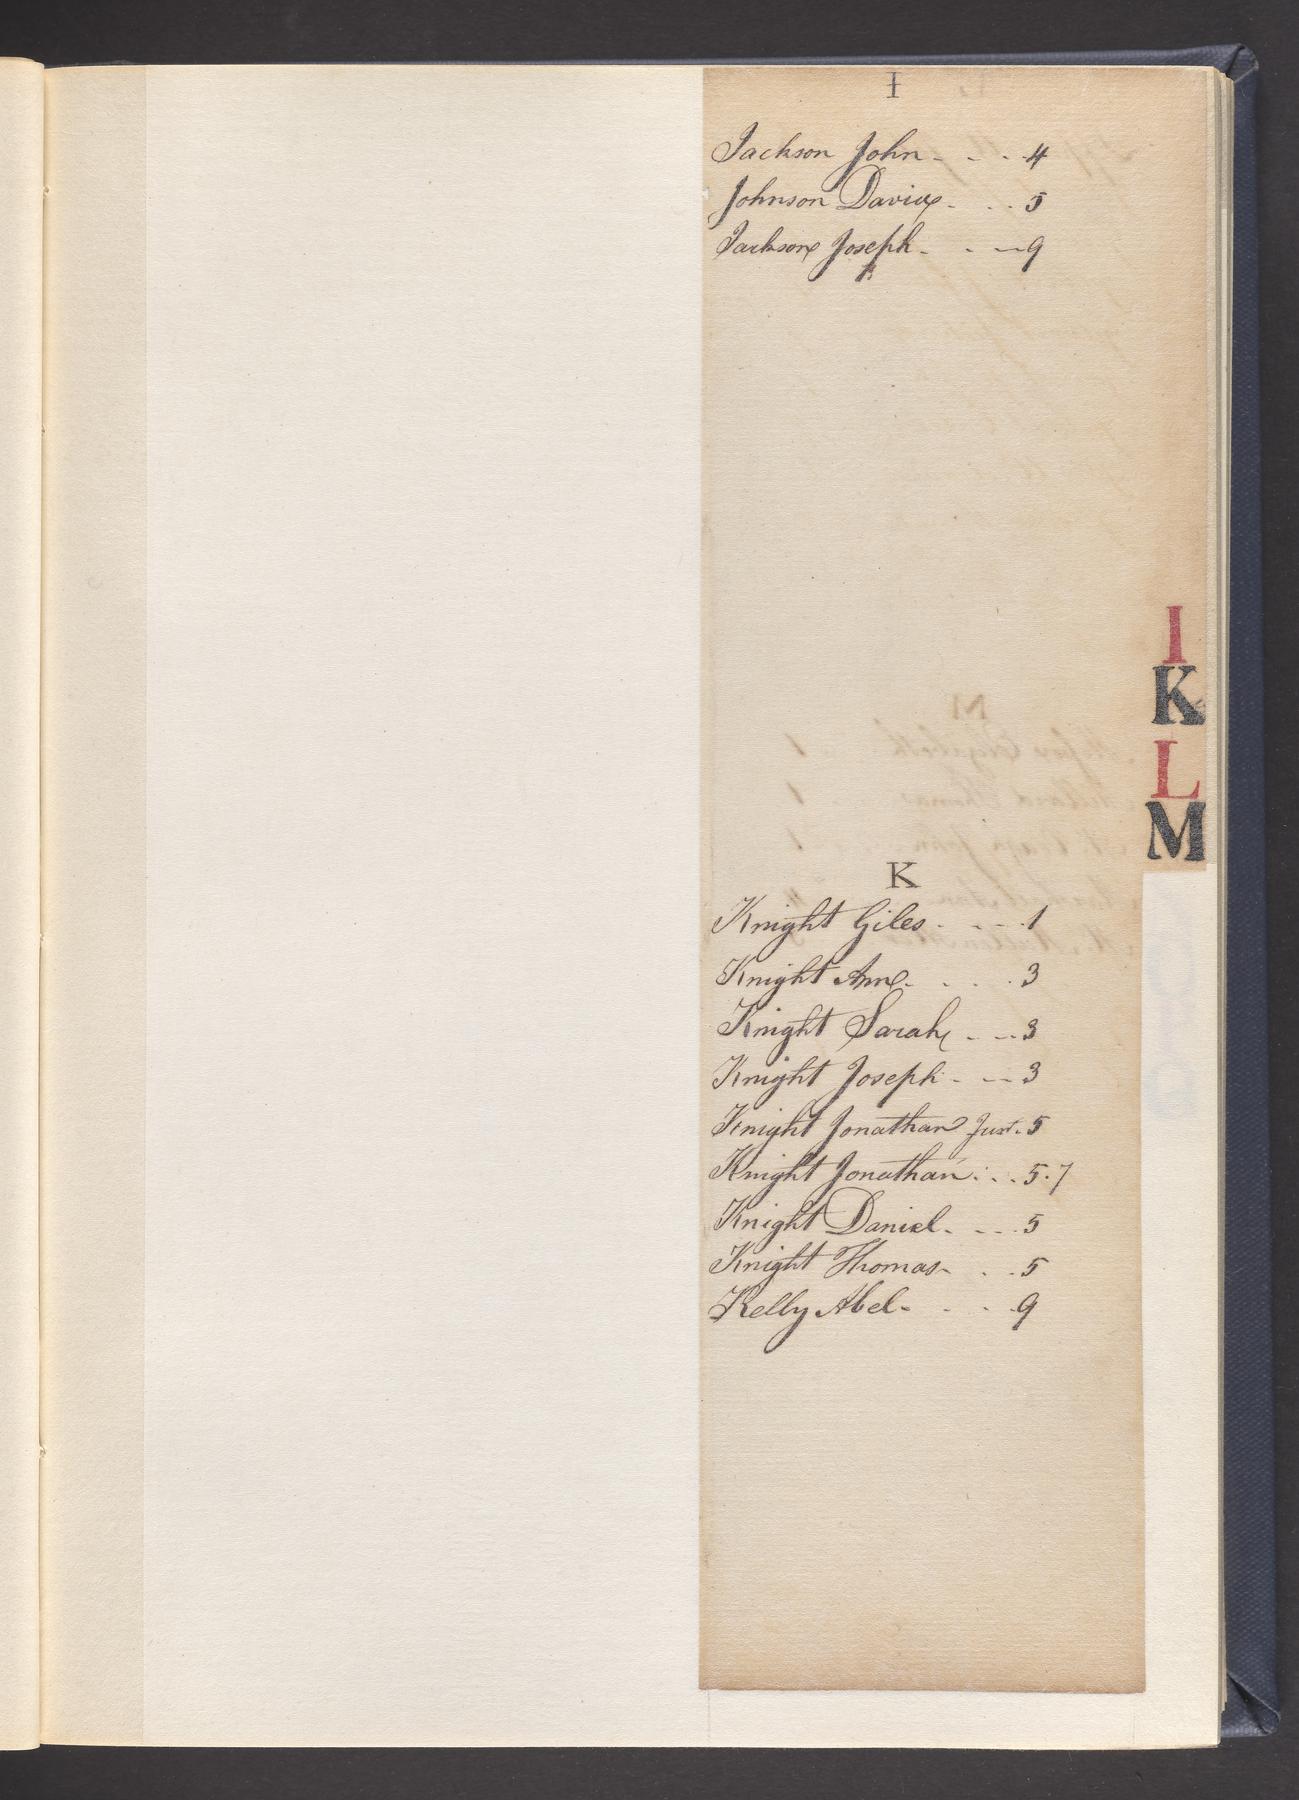 I
Jackson John - - - 4
Johnson David - - - 5
Jackson Joseph - - - 9
I
K
L
M
K
Knight Giles - - - - 1
Knight Ann - - - - 3
Knight Sarah - - - 3
Knight Joseph - - - 3
Knight Jonathan Junr. 5
Knight Jonathan - - - 5.7
Knight Daniel - - - 5
Knight Thomas - - - 5
Kelly Abel - - - 9